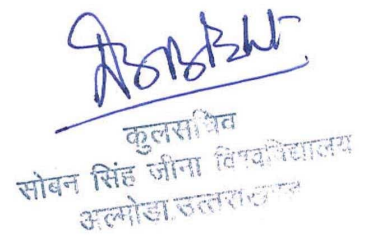 कुलसचिव
सोबन सिंह जीना विश्वविद्यालय
अल्मोडा उत्तराखण्ड